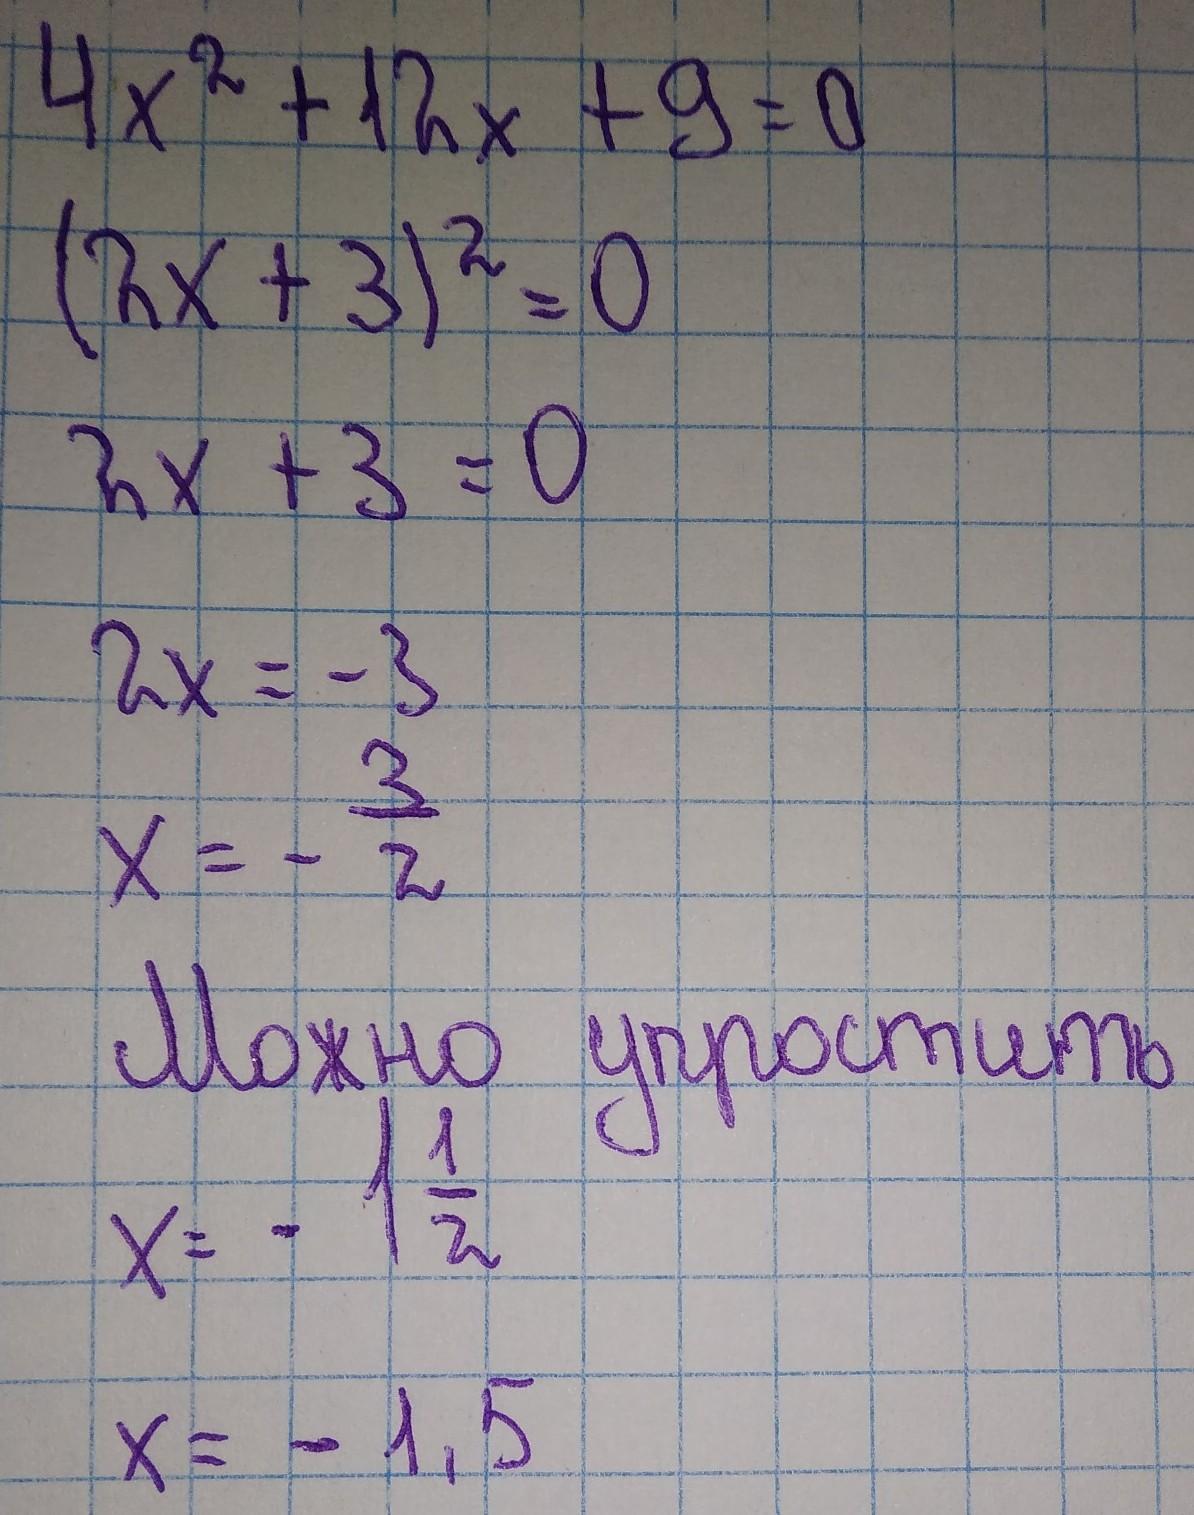 4x² + 12x + 9 = 0
(2x + 3)² = 0
2x + 3 = 0
2x = -3
x = - 3/2
Можно упростить
x = - 1 1/2
x = - 1,5